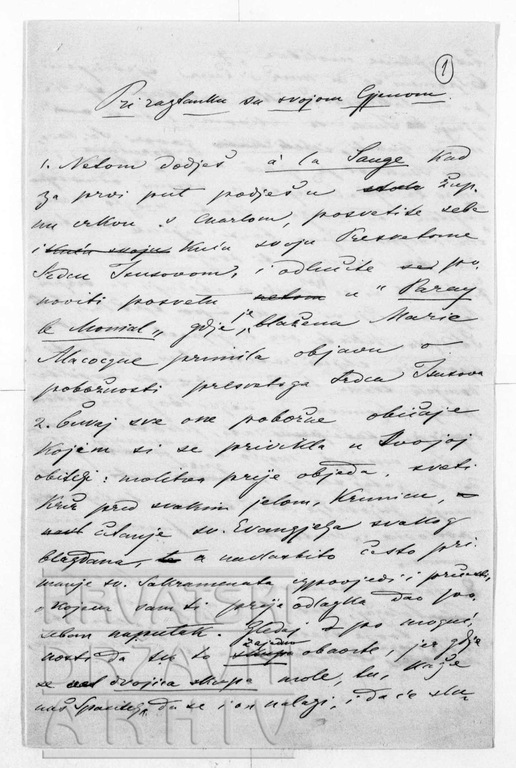 1
Pri rastanku sa svojom Gjenom.
1. Netom dodješ à la Sauge kad
za prvi put podješ u žup-
nu crkvu s Charlom, posvetite sebe
i kuću svoju kuću svoju Presvetome
Srdcu Isusovom, i odlučite se po-
noviti posvetu netom u "Paray
le Monial" gdje je blažena Marie
Alacocque primila objavu o
pobožnosti presvetoga Srdca Isusova
2. Čuvaj sve one pobožne običaje
kojem si se privikla u svojoj
obitelji: molitva prije objeda, sveti
Križ pred svakim jelom, Krunicu,
čitanje sv. Evangjelja svakog
blagdana, a navlastito često pri-
manje sv. Sakramenata ispovjedi i pričesti,
o kojem sam ti prije odlazka dao po-
seban naputak. Gledaj po moguć-
nosti da su to skupa zajedno obavite, jer gdje
se dvojica skupa mole, tu, kaže
naš Spasitelj, da se i on nalazi, i da će slu-
HRVATSKI
DRŽAVNI
ARHIV